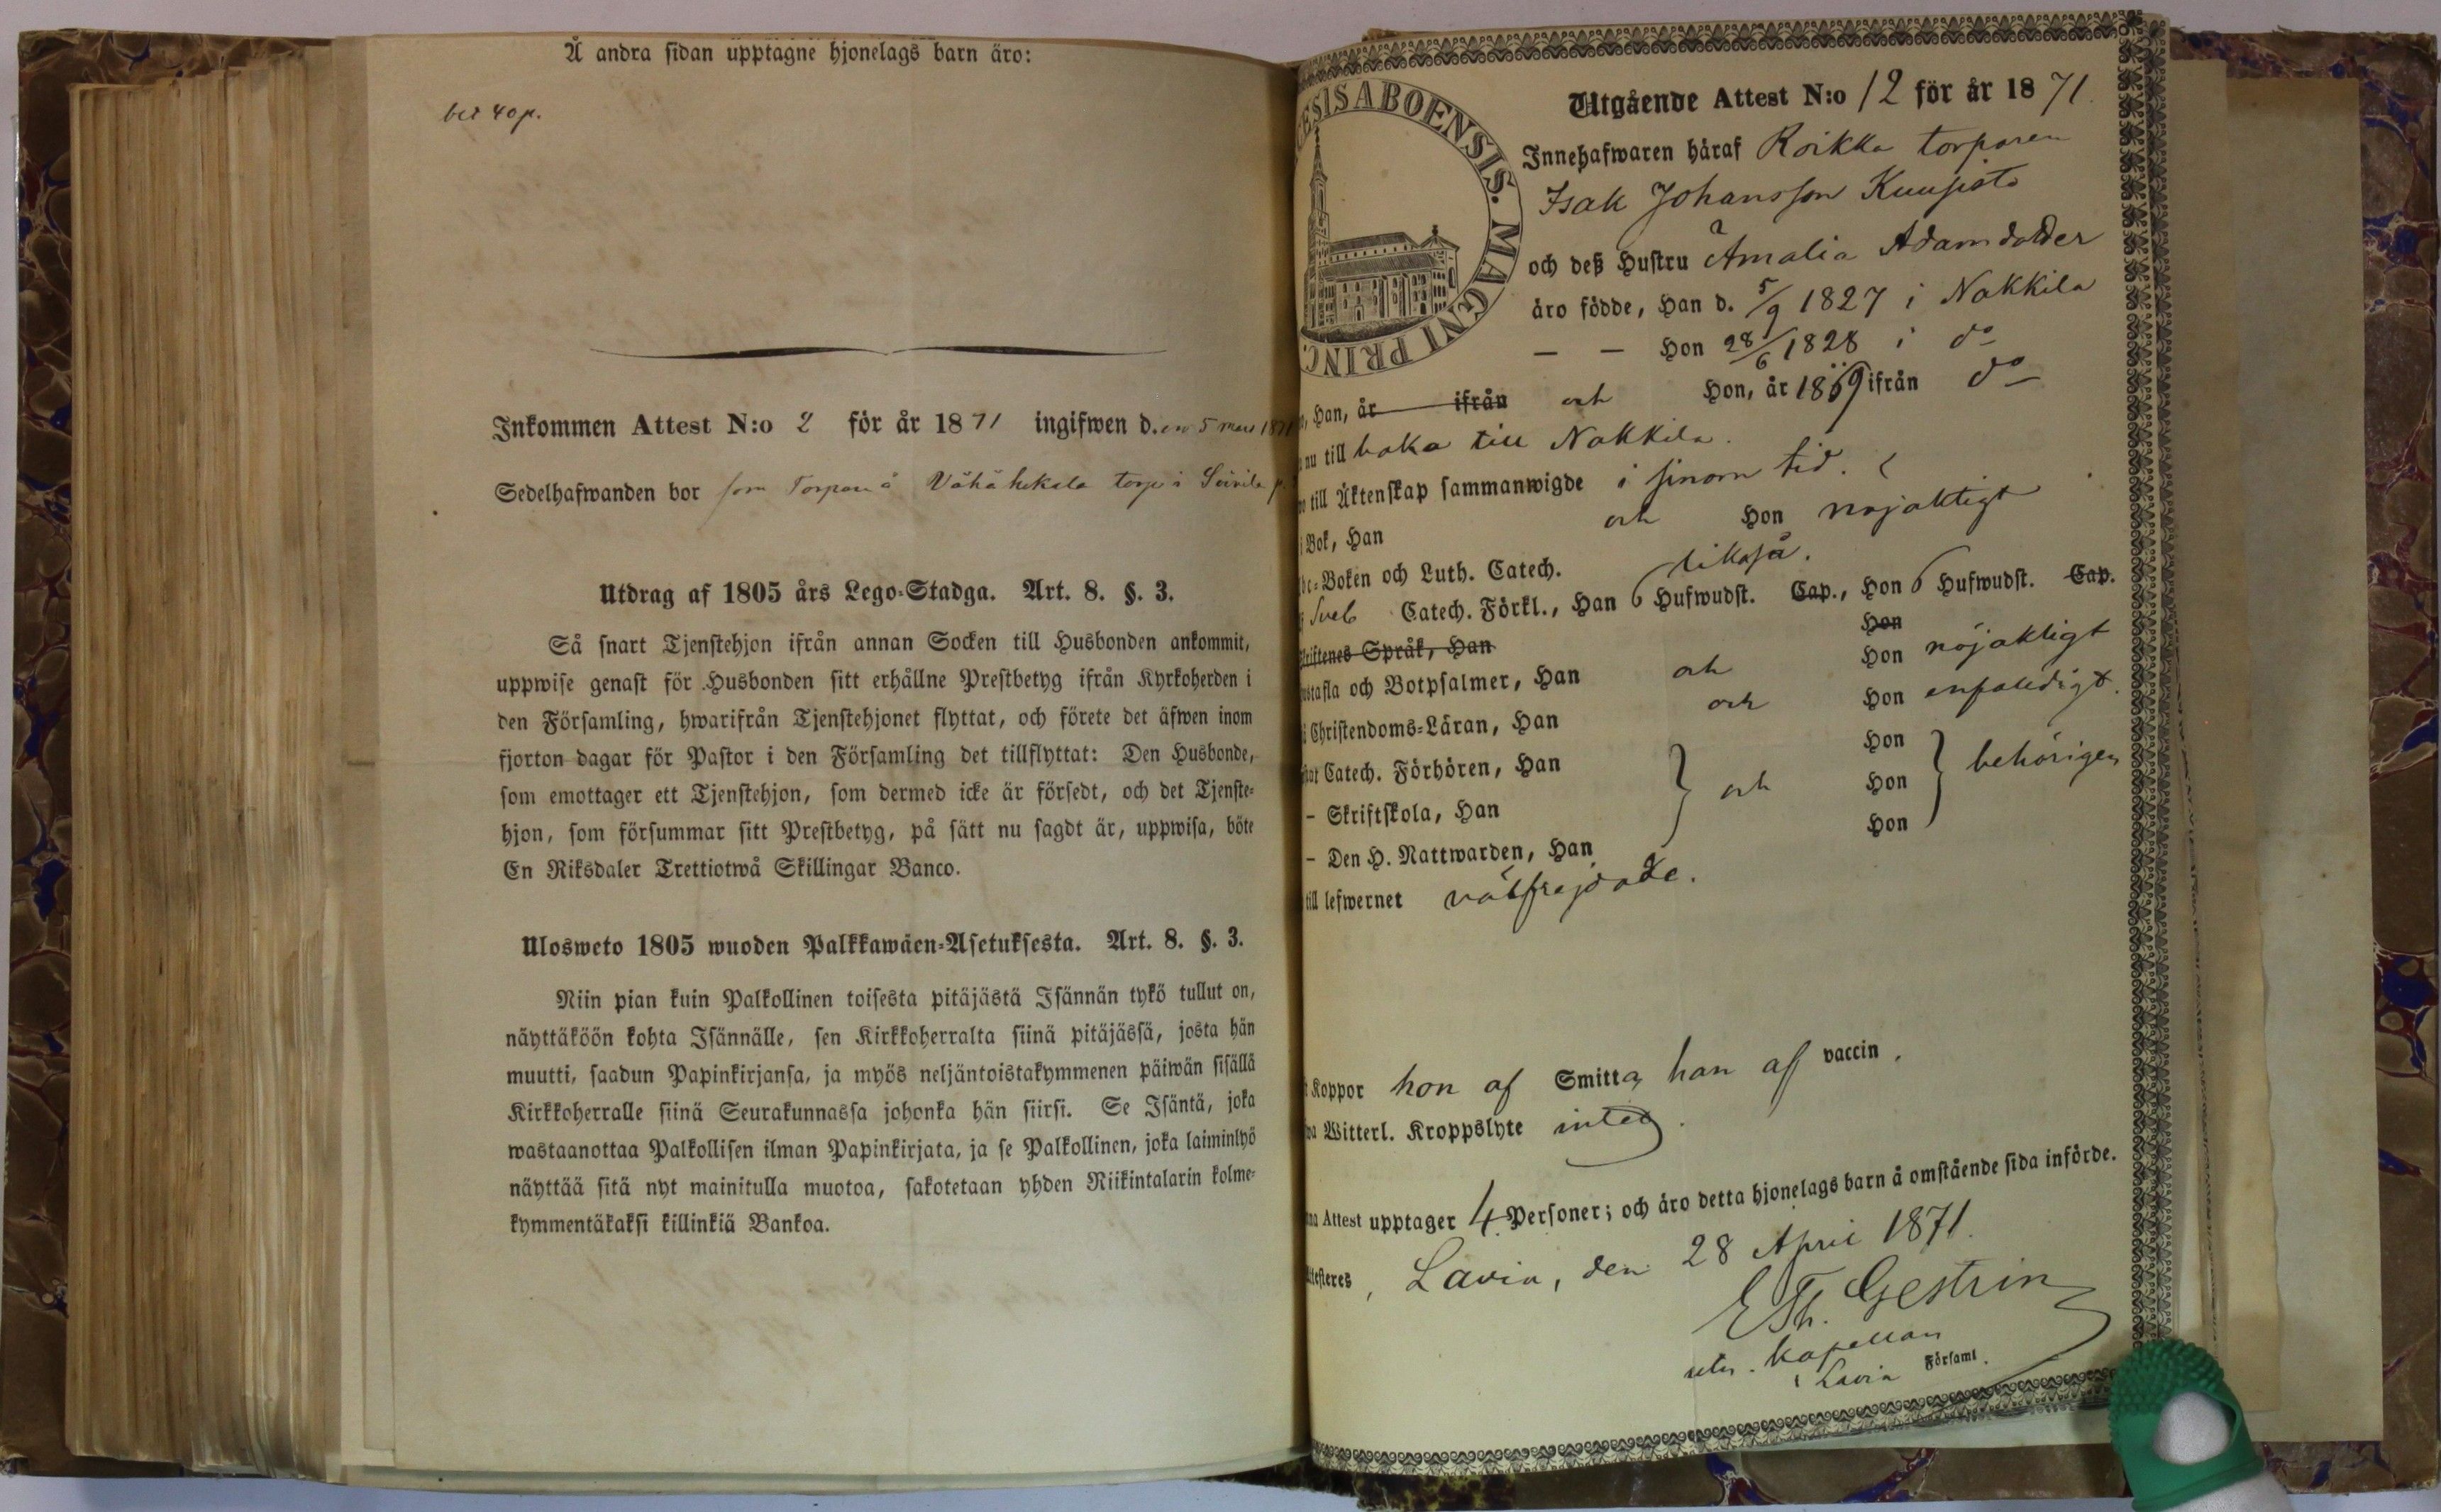 Å andra sidan upptagne hjonelags barn äro:
bet 40 p.
Inkommen Attest N:o 2 för år 1871 ingifwen d.en 5 mars 1871
Sedelhafwanden bor som Torpare å Vähähekala torp i Soinila
Utdrag af 1805 års Lego-Stadga. Art. 8. §. 3.
Så snart Tjenstehjon ifrån annan Socken till Husbonden ankommit,
uppwise genast för Husbonden sitt erhållne Prestbetyg ifrån Kyrkoherden i
den Församling, hwarifrån Tjenstehjonet flyttat, och förete det äfwen inom
fjorton dagar för Pastor i den Församling det tillflyttat: Den Husbonde,
som emottager ett Tjenstehjon, som dermed icke är försedt, och det Tjenste-
hjon, som försummar sitt Prestbetyg, på sätt nu sagdt är, uppwisa, böte
En Riksdaler Trettiotwå Skillingar Banco.
Ulosweto 1805 wuoden Palkkawäen-Asetuksesta. Art. 8. §. 3.
Niin pian kuin Palkollinen toisesta pitäjästä Isännän tykö tullut on,
näyttäköön kohta Isännälle, sen Kirkkoherralta siinä pitäjässä, josta hän
muutti, saadun Papinkirjansa, ja myös neljäntoistakymmenen päiwän sisällä
Kirkkoherralle siinä Seurakunnassa johonka hän siirsi. Se Isäntä, joka
wastaanottaa Palkollisen ilman Papinkirjata, ja se Palkollinen, joka laiminlyö
näyttää sitä nyt mainitulla muotoa, sakotetaan yhden Riikintalarin kolme-
kymmentäkaksi killinkiä Bankoa.
CESIS ABOENSIS. MAGNI PRINC.
Utgående Attest N:o 12 för år 1871.
Innehafwaren häraf Roikka torparen
Isak Johansson Kuusisto
och deß Hustru Amalia Adamsdotter
äro födde, Han d. 5/9 1827 i Nakkila
— — Hon 28/6 1828 i do
Han, år ifrån och Hon, år 1869 ifrån do
nu till baka till Nakkila.
till Äktenskap sammanwigde i sinom tid.
Bok, Han och Hon nöjaktigt
Boken och Luth. Catech. likaså.
Sveb Catech. Förkl., Han 6 Hufwudst. Cap., Hon 6 Hufwudst. Cap.
Skriftenes Språk, Han Hon
Hustafla och Botpsalmer, Han och Hon nöjaktigt
Christendoms-Läran, Han och Hon enfaldigt.
Catech. Förhören, Han Hon
- Skriftskola, Han och Hon behörigen
- Den H. Nattwarden, Han Hon
till lefwernet välfrejdade.
Koppor hon af Smitta, han af vaccin.
Witterl. Kroppslyte intet.
Attest upptager 4 Personer; och äro detta hjonelags barn å omstående sida införde.
Attesteres, Lavia, den 28 April 1871.
E Th. Gestrin
Kapellan
i Lavia Församl.